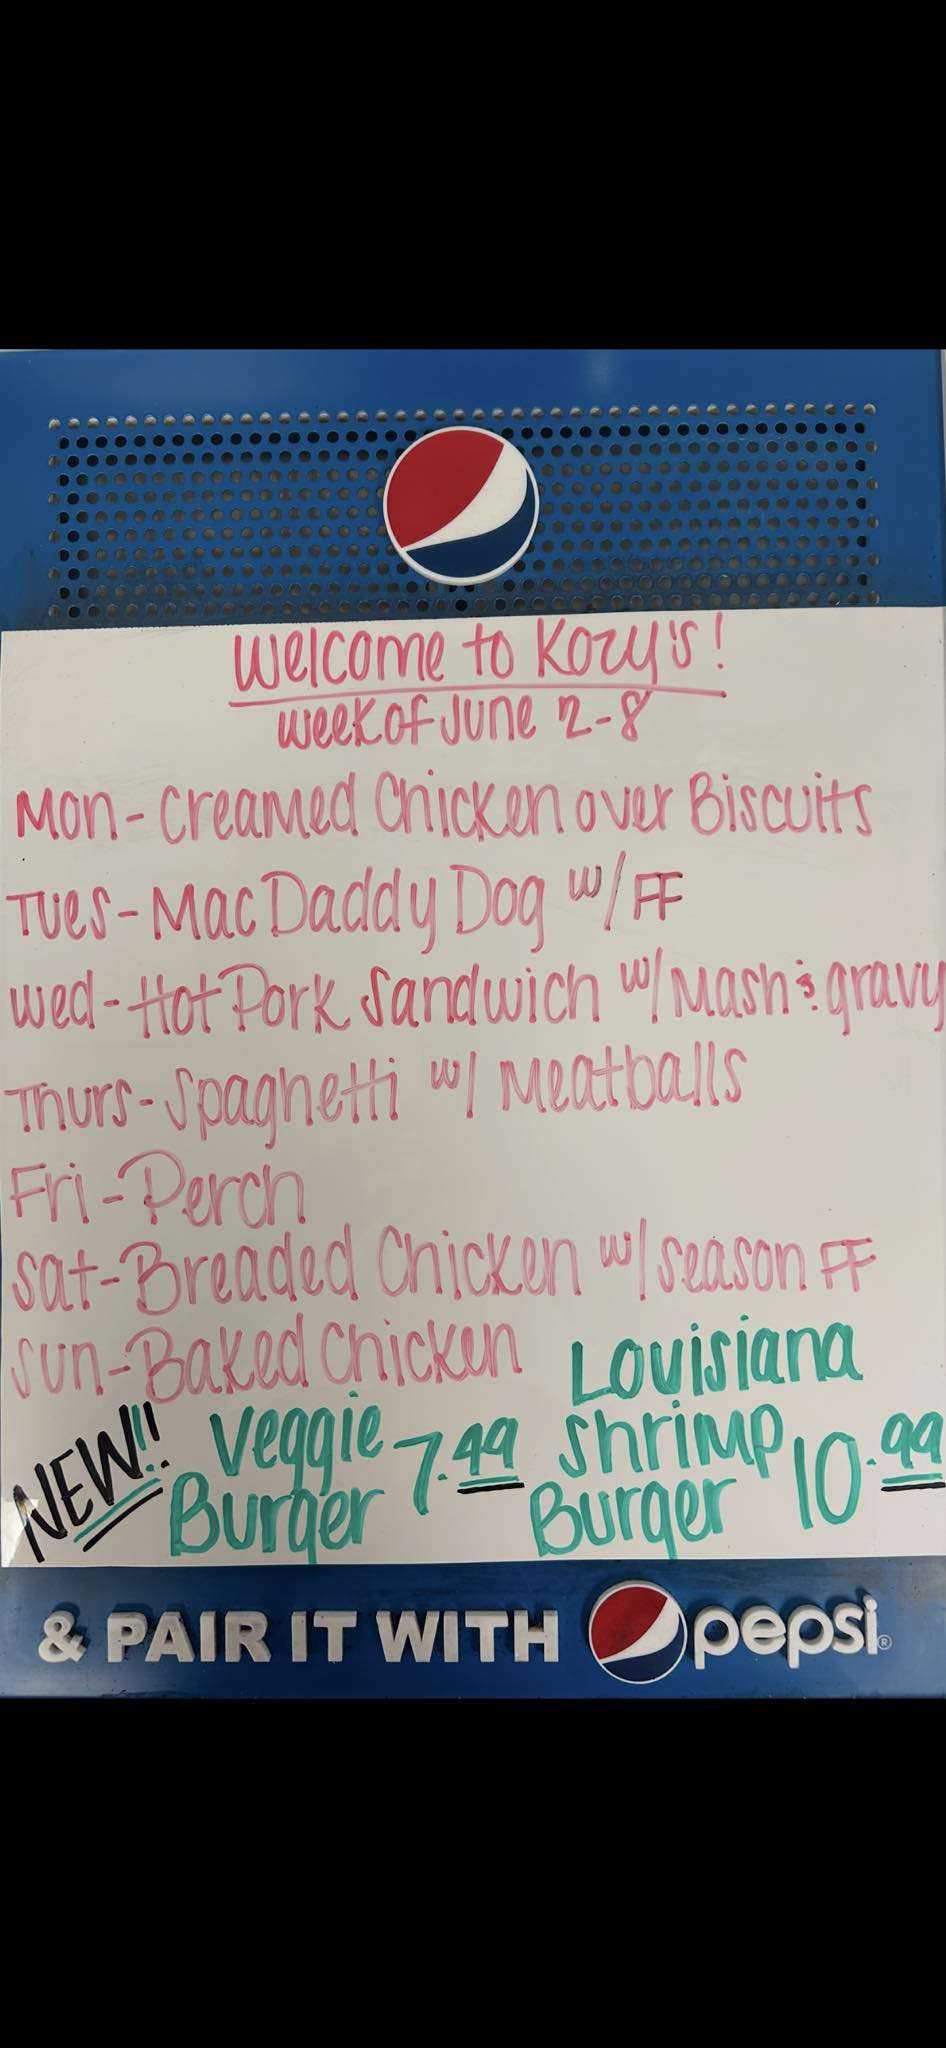 Welcome to Kozy's!
Week of June 2-8
Mon- Creamed Chicken over Biscuits
Tues- Mac Daddy Dog w/ FF
Wed- Hot Pork Sandwich w/ Mash & gravy
Thurs- Spaghetti w/ Meatballs
Fri- Perch
Sat- Breaded Chicken w/ season FF
Sun- Baked Chicken
NEW!!
Veggie
Burger 7.49
Louisiana
Shrimp
Burger 10.99
& PAIR IT WITH pepsi®